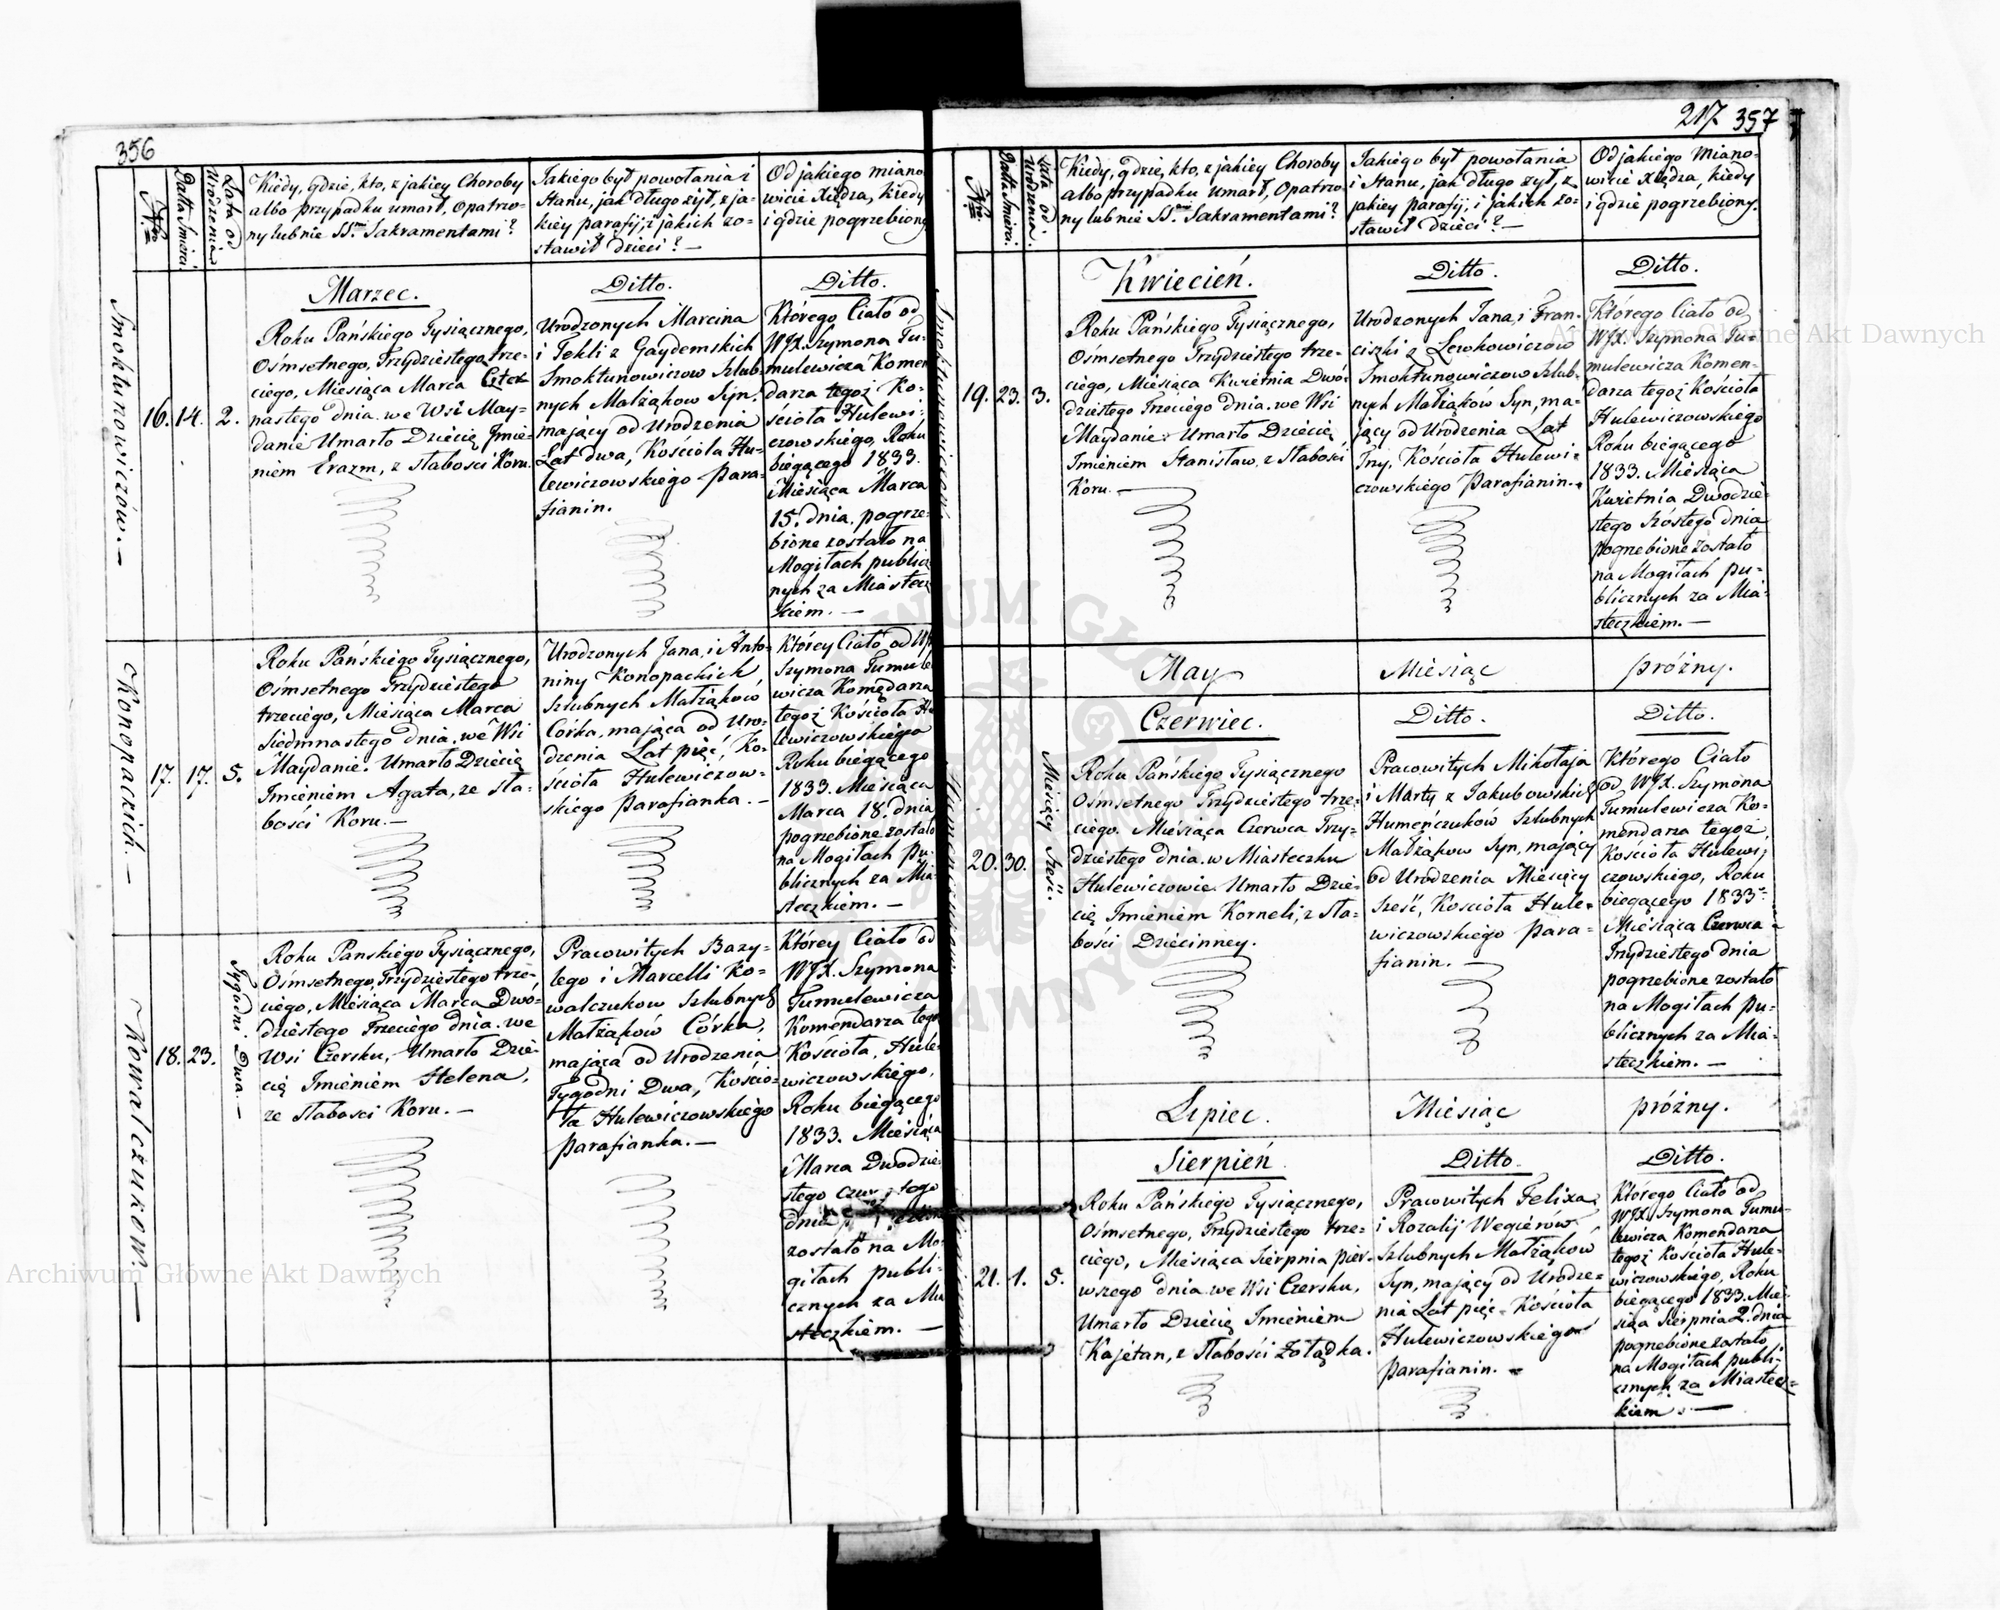 356
Nro
Datta śmierci
Lata od Urodzenia
Kiedy, gdzie, kto, z jakiey Choroby
albo przypadku umarł, Opatrzo-
ny lub nie SS.mi Sakramentami?
Jakiego był powołania i
Stanu, jak długo żył, z ja-
kiey parafij, i jakich zo-
stawił dzieci? —
Od jakiego miano
wicie Xiędza, kiedy
i gdzie pogrzebiony
Smoktunowiczów. —
16.
14.
2.
Marzec.
Roku Pańskiego Tysiącznego,
Ośmsetnego, Trzydziestego trze-
ciego, Miesiąca Marca Czter
nastego dnia. we Wsi May-
danie Umarło Dziecię Jmie-
niem Erazm, z słabosci Koru.
Ditto.
Urodzonych Marcina
i Tekli z Gaydemskich
Smoktunowiczow Szlub-
nych Małżąkow Syn,
mający od Urodzenia
Lat dwa, Kościoła Hu-
lewiczowskiego Para-
fianin.
Ditto.
Którego Ciało od
WJX. Szymona Tu-
mulewicza Komen
darza tegoż Ko-
ścioła Hulewi-
czowskiego, Roku
biegącego 1833.
Miesiąca Marca
15. dnia, pogrze-
bione zostało na
Mogiłach public
nych za Miastecz
kiem. —
Konopackich. —
17.
17.
5.
Roku Pańskiego Tysiącznego,
Ośmsetnego Trzydziestego
trzeciego, Miesiąca Marca
Siedmnastego dnia, we Wsi
Maydanie. Umarło Dziecię
Imieniem Agata, ze sła-
bości Koru. —
Urodzonych Jana, i Anto-
niny Konopackich
Szlubnych Małżąków
Córka, mająca od Uro-
dzenia Lat pięć, Ko-
ścioła Hulewiczow-
skiego Parafianka. —
Którey Ciało od WJX
Szymona Tumule
wicza Komędarza
tegoż Kościoła Hu
lewiczowskiego
Roku biegącego
1833. Miesiąca
Marca 18. dnia
pogrzebione zostało
na Mogiłach Pu-
blicznych za Mia-
steczkiem. —
Kowalczukow. —
18.
23.
Tygodni Dwa. —
Roku Panskiego Tysiącznego,
Ośmsetnego, Trzydziestego trze-
ciego, Miesiąca Marca Dwó-
dziestego Trzeciego dnia. we
Wsi Czersku, Umarło Dzie-
cię Imieniem Helena,
ze słabosci Koru. —
Pracowitych Bazy-
lego i Marcelli Ko-
walczukow Szlubnych
Małżąków Córka,
mająca od Urodzenia
Tygodni Dwa, Kościo-
ła Hulewiczowskiego
Parafianka. —
Którey Ciało od
WJX. Szymona
Tumulewicza
Komendarza tego
Kościoła, Hule-
wiczowskiego,
Roku biegącego
1833. Miesiąca
Marca Dwodzie-
stego
dnia
zostało na Mo-
giłach publi-
cznych za Mia
steczkiem. —
217 357
Nro
Datta śmierci
Lata od Urodzenia
Kiedy, gdzie, kto, z jakiey Choroby
albo przypadku umarł, Opatrzo-
ny lub nie SS.mi Sakramentami?
Jakiego był powołania
i Stanu, jak długo żył, z
jakiey parafij, i jakich zo-
stawił dzieci? —
Od jakiego miano-
wicie Xiędza, kiedy
i gdzie pogrzebiony.
19.
23.
3.
Kwiecień.
Roku Pańskiego Tysiącznego,
Ośmsetnego Trzydziestego trze-
ciego, Miesiąca Kwietnia Dwó-
dziestego Trzeciego dnia. we Wsi
Maydanie. Umarło Dziecię
Imieniem Stanisław, z słabości
Koru. —
Ditto.
Urodzonych Jana, i Fran-
ciszki z Lewkowiczow
Smoktunowiczow Szlub-
nych Małżąkow Syn, ma-
jący od Urodzenia Lat
Trzy, Kościoła Hulewi-
czowskiego Parafianin.
Ditto.
Którego Ciało od
WJX. Szymona Tu-
mulewicza Komen-
darza tegoż Kościoła
Hulewiczowskiego
Roku biegącego
1833. Miesiąca
Kwietnia Dwodzie-
stego szóstego dnia
pogrzebione zostało
na Mogiłach pu-
blicznych za Mia-
steczkiem. —
May
Miesiąc
próżny.
20.
30.
Miesięcy Sześć.
Czerwiec.
Roku Pańskiego Tysiącznego
Ośmsetnego Trzydziestego trze-
ciego. Miesiąca Czerwca Trzy-
dziestego dnia. w Miasteczku
Hulewiczowie. Umarło Dzie-
cię Imieniem Korneli, z sła-
bości Dziecinney.
Ditto.
Pracowitych Mikołaja
i Marty z Jakubowskich
Humeńczukow Szlubnych
Małżąkow Syn, mający
od Urodzenia Miesięcy
Sześć, Kościoła Hule-
wiczowskiego Para-
fianin. —
Ditto.
Którego Ciało
od WJX. Szymona
Tumulewicza Ko-
mendarza tegoż
Kościoła Hulewi-
czowskiego, Roku
biegącego 1833
Miesiąca Czerwca
Trzydziestego dnia
pogrzebione zostało
na Mogiłach pu-
blicznych za Mia-
steczkiem. —
Lipiec.
Miesiąc
próżny.
21.
1.
5.
Sierpień
Roku Pańskiego Tysiącznego,
Ośmsetnego, Trzydziestego trze-
ciego, Miesiąca Sierpnia pier-
wszego dnia. we Wsi Czersku,
Umarło Dziecię Imieniem
Kajetan, z słabości żołądka.
Ditto.
Pracowitych Felixa
i Rozalij Węgierów,
Szlubnych Małżąków
Syn, mający od Urodze-
nia Lat pięć. Kościoła
Hulewiczowskiego
Parafianin. —
Ditto.
Którego Ciało od
WJX. Szymona Tumu-
lewicza Komendarza
tegoż Kościoła Hule-
wiczowskiego, Roku
biegącego 1833. Mie-
siąca Sierpnia 2. dnia
pogrzebione zostało
na Mogiłach publi-
cznych za Miastecz-
kiem. —
Archiwum Główne Akt Dawnych
Archiwum Główne Akt Dawnych